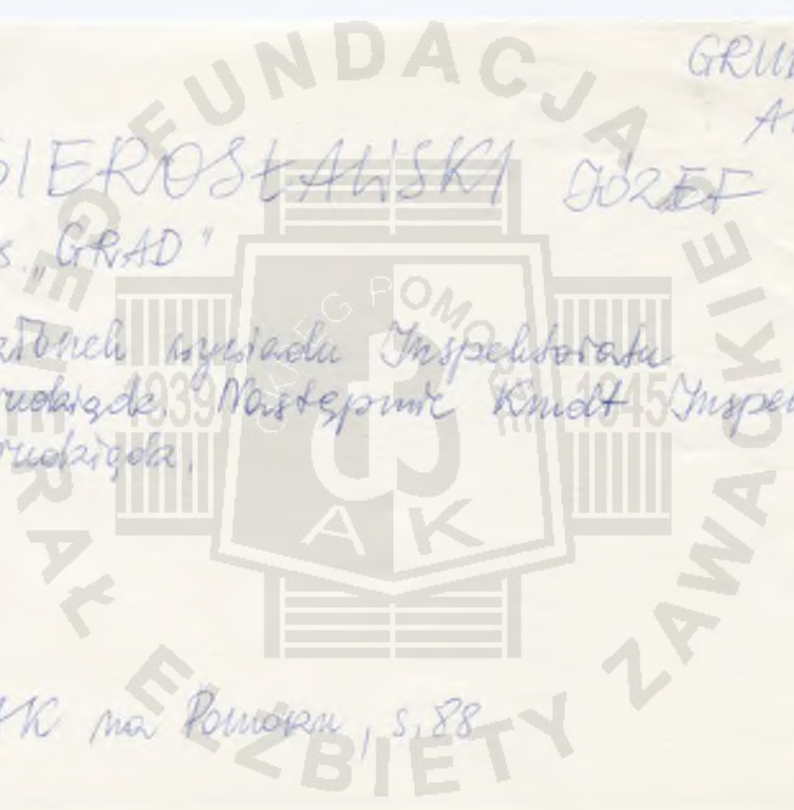 GRUD
AK
SIEROSŁAWSKI JÓZEF
ps. „GRAD"
członek wywiadu Inspektoratu
Grudziądz. Następnie Kmdt Inspek
Grudziądz.
AK na Pomorzu, s. 88
FUNDACJA
GENERAŁ ELŻBIETY ZAWACKIEJ
OKRĘG POMORZE
1939 1945
AK